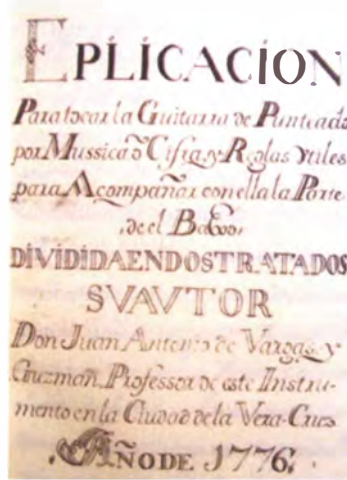 EPLICACION
Para tocar la Guitarra de Punteado
por Mussica ò Cifra, y Reglas Vtiles
para Acompañar con ella la Parte
de el Baxo,
DIVIDIDA EN DOS TRATADOS
SV AVTOR
Don Juan Antonio de Vargas, y
Guzmán, Professor de este Instru-
mento en la Ciudad de la Vera-Cruz
AÑO DE 1776.